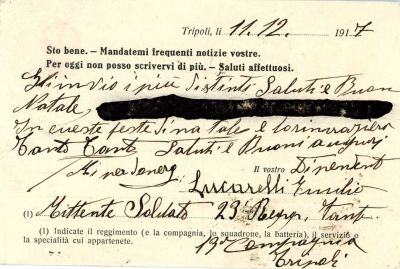 Tripoli, li 11.12. 1917
Sto bene. – Mandatemi frequenti notizie vostre.
Per oggi non posso scrivervi di più. – Saluti affettuosi.
i più distinti Saluti e Buon
Natale
In queste feste di natale e
Tanto Tanto Saluti e Buoni auguri
Il vostro
Lucarelli Emilio
(1) Mittente Soldato 23 Regg. Fant.
(1) Indicate il reggimento (e la compagnia, lo squadrone, la batteria), il servizio o
la specialità cui appartenete.
Compagnia
Tripoli